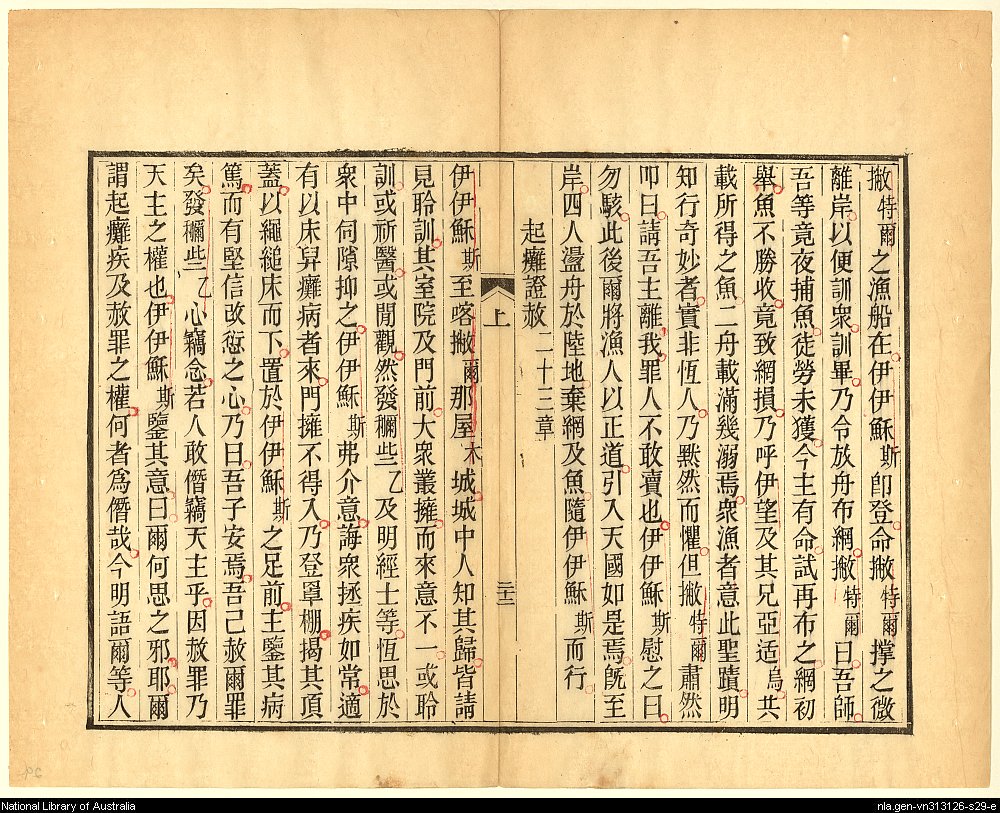 撇特爾之漁船在伊伊穌斯卽登命撇特爾撑之微
離岸以便訓衆訓畢乃令放舟布網撇特爾曰吾師
吾等竟夜捕魚徒勞未獲今主有命試再布之網初
舉魚不勝收竟致網損乃呼伊望及其兄亞适烏共
載所得之魚二舟載滿幾溺焉衆漁者意此聖蹟明
知行奇妙者實非恆人乃黙然而懼但撇特爾肅然
叩曰請吾主離我罪人不敢瀆也伊伊穌斯慰之曰
勿駭此後爾將漁人以正道引入天國如是焉旣至
岸四人盪舟於陸地棄網及魚隨伊伊穌斯而行
起癱證赦二十三章
上
二十二
伊伊穌斯至喀撇爾那屋木城城中人知其歸皆請
見聆訓其室院及門前大衆叢擁而來意不一或聆
訓或祈醫或閒觀然發穪些乙及明經士等恆思於
衆中伺隙抑之伊伊穌斯弗介意誨衆拯疾如常適
有以床舁癱病者來門擁不得入乃登罩棚揭其頂
蓋以繩縋床而下置於伊伊穌斯之足前主鑒其病
篤而有堅信改愆之心乃曰吾子安焉吾己赦爾罪
矣發穪些乙心竊念若人敢僭竊天主乎因赦罪乃
天主之權也伊伊穌斯鑒其意曰爾何思之邪耶爾
謂起癱疾及赦罪之權何者爲僭哉今明語爾等人
National Library of Australia
nla.gen-vn313126-s29-e